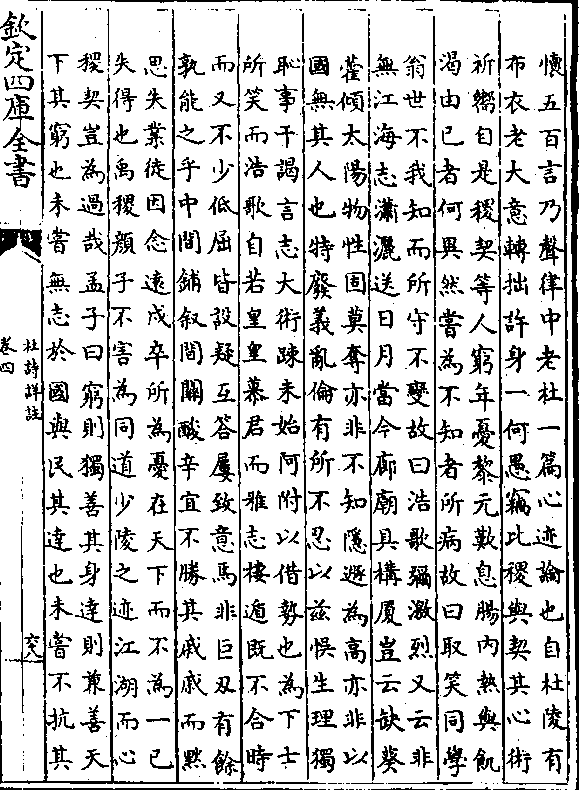 懷五百言乃聲律中老杜一篇心迹論也自杜陵有
布衣老大意轉拙許身一何愚竊比稷與契其心術
祈嚮自是稷契等人窮年憂黎元歎息腸内熱與飢
渴由已者何異然嘗為不知者所病故曰取笑同學
翁世不我知而所守不變故曰浩歌彌激烈又云非
無江海志瀟灑送日月當今廊廟具構厦豈云缺葵
藿傾太陽物性固莫奪亦非不知隱遯為高亦非以
國無其人也特廢義亂倫有所不忍以兹悞生理獨
恥事干謁言志大術疎未始阿附以借勢也為下士
所笑而浩歌自若皇皇慕君而雅志棲遁既不合時
而又不少低屈皆設疑互答屢致意焉非巨刃有餘
孰能之乎中間鋪叙間關酸辛宜不勝其戚戚而黙
思失業徒因念逺戍卒所為憂在天下而不為一已
失得也禹稷顔子不害為同道少陵之迹江湖而心
稷契豈為過哉孟子曰窮則獨善其身達則兼善天
下其窮也未嘗無志於國與民其達也未嘗不抗其
欽定四庫全書
杜詩詳註
卷四
六八